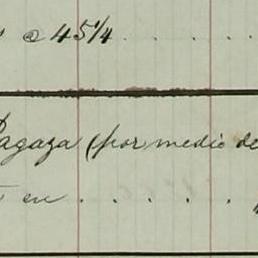 @ 45 1/4 . . . .
Pagaza (por medio de
en . . . . .